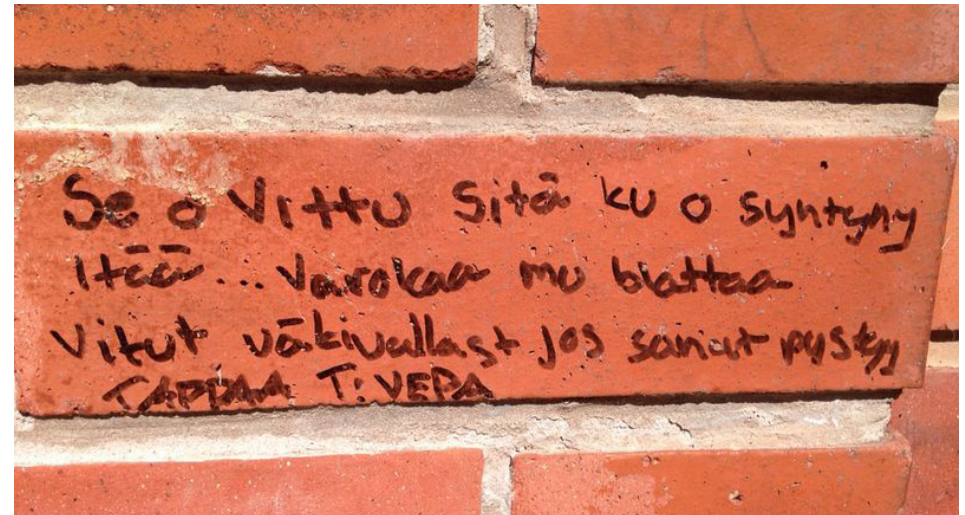 Se o Vittu Sitä ku o syntyny
Itää... Varokaa mu blattaa
Vitut väkivallast jos sanat pystyy
TAPPAA T: VEPA